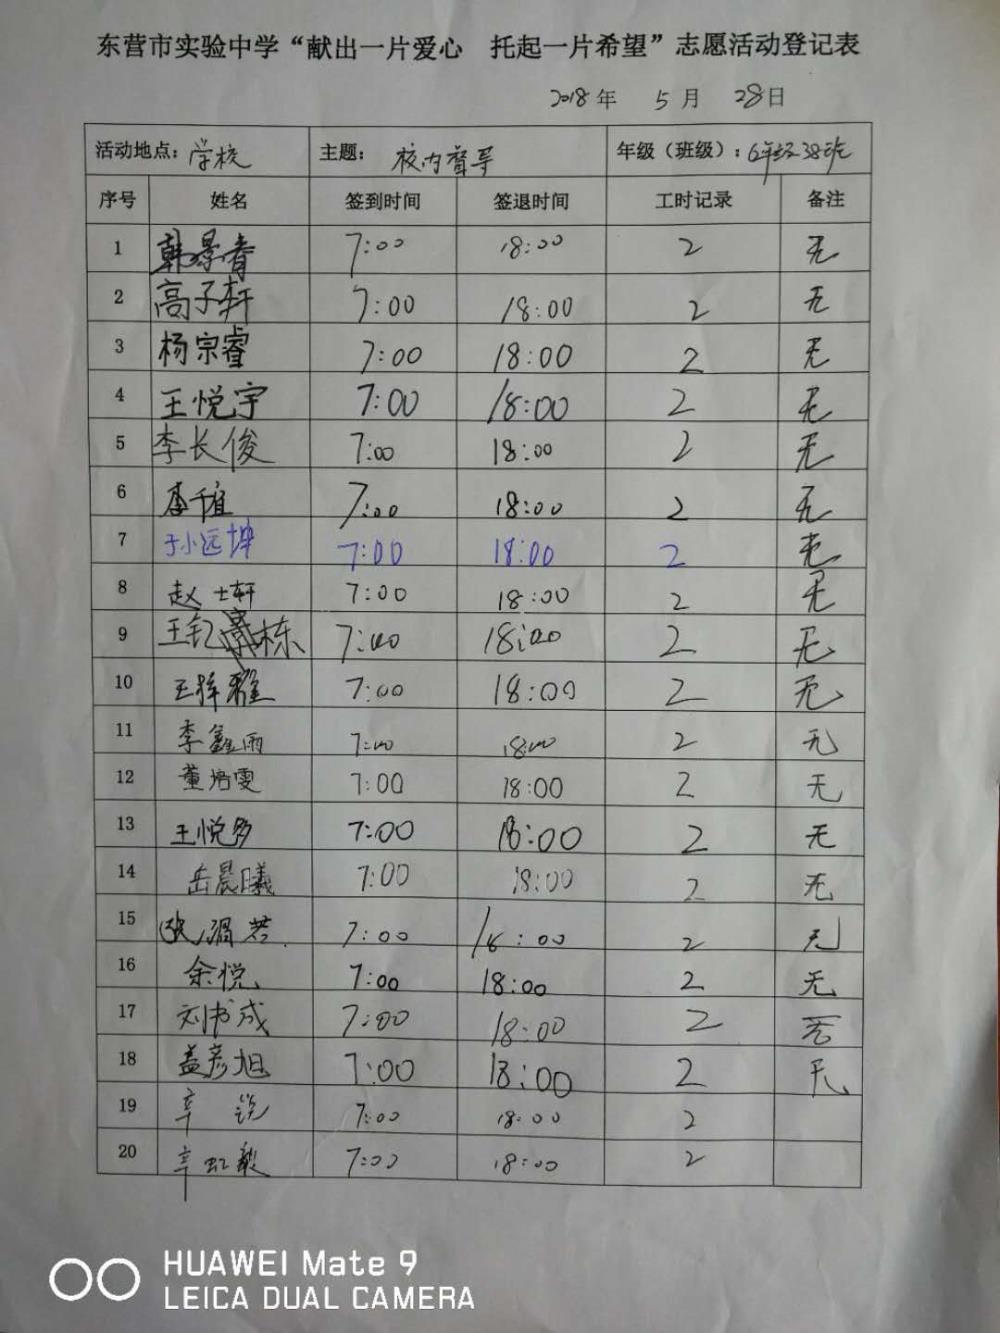 东营市实验中学“献出一片爱心 托起一片希望”志愿活动登记表
2018年 5月 28日
活动地点：学校 主题： 校内督导 年级（班级）：6年级38班
序号 姓名 签到时间 签退时间 工时记录 备注
1 韩景春 7:00 18:00 2 无
2 高子轩 7:00 18:00 2 无
3 杨宗睿 7:00 18:00 2 无
4 王悦宇 7:00 18:00 2 无
5 李长俊 7:00 18:00 2 无
6 7:00 18:00 2 无
7 于小远坤 7:00 18:00 2 无
8 赵士轩 7:00 18:00 2 无
9 王钇栋 7:00 18:00 2 无
10 7:00 18:00 2 无
11 李鑫雨 7:00 18:00 2 无
12 董培雯 7:00 18:00 2 无
13 王悦多 7:00 18:00 2 无
14 岳晨曦 7:00 18:00 2 无
15 7:00 18:00 2 无
16 余悦 7:00 18:00 2 无
17 刘书成 7:00 18:00 2 无
18 盖彦旭 7:00 18:00 2 无
19 辛锐 7:00 18:00 2
20 辛虹毅 7:00 18:00 2
HUAWEI Mate 9
LEICA DUAL CAMERA